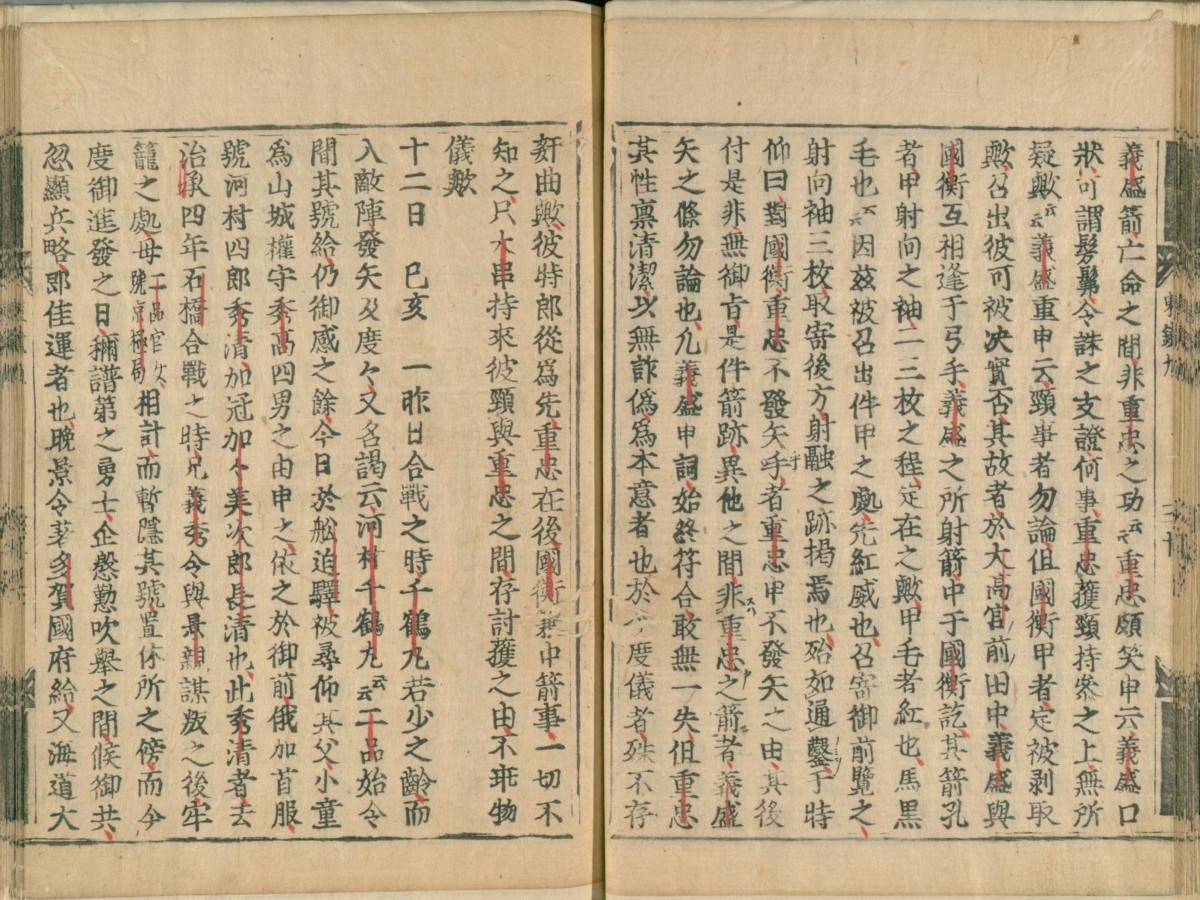 義盛箭亡命之間非重忠之功云々重忠頗笑申云義盛口
狀可謂髣髴令誅之支證何事重忠獲頸持參之上無所
疑歟云々義盛重申云頸事者勿論但國衡甲者定被剥取
歟召出彼可被决實否其故者於大高宮前田中義盛與
國衡互相逢于弓手義盛之所射箭中于國衡訖其箭孔
者甲射向之袖二三枚之程定在之歟甲毛者紅也馬黑
毛也云々因茲被召出件甲之處先紅威也召寄御前覽之
射向袖三枚取寄後方射融之跡揭焉也殆如通鑿于時
仰曰對國衡重忠不發矢乎者重忠申不發矢之由其後
付是非無御旨是件箭跡異他之間非重忠之箭者義盛
矢之條勿論也凢義盛申詞始終符合敢無一失但重忠
其性禀清潔以無詐僞爲本意者也於今度儀者殊不存
姧曲歟彼時郎從爲先重忠在後國衡兼中箭事一切不
知之只大串持來彼頸與重忠之間存討獲之由不乖物
儀歟
十二日 已亥 一昨日合戰之時千鶴丸若少之齡而
入敵陣發矢及度々又名謁云河村千鶴丸云云二品始令
聞其號給仍御感之餘今日於舩迫驛被尋仰其父小童
爲山城權守秀高四男之由申之依之於御前俄加首服
號河村四郎秀清加冠加々美次郎長清也此秀清者去
治承四年石橋合戰之時兄義秀令與景親謀叛之後牢
籠之處母二品官女號京極局相計而暫隱其號置休所之傍而今
度御進發之日稱譜第之勇士企慇懃吹擧之間候御共
忽顯兵略即佳運者也晚景令著多賀國府給又海道大